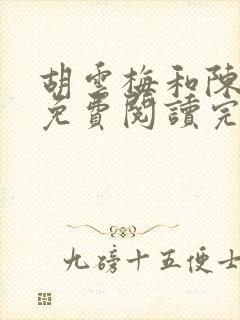 胡雲梅和陳
免費閱讀完
九磅十五便士